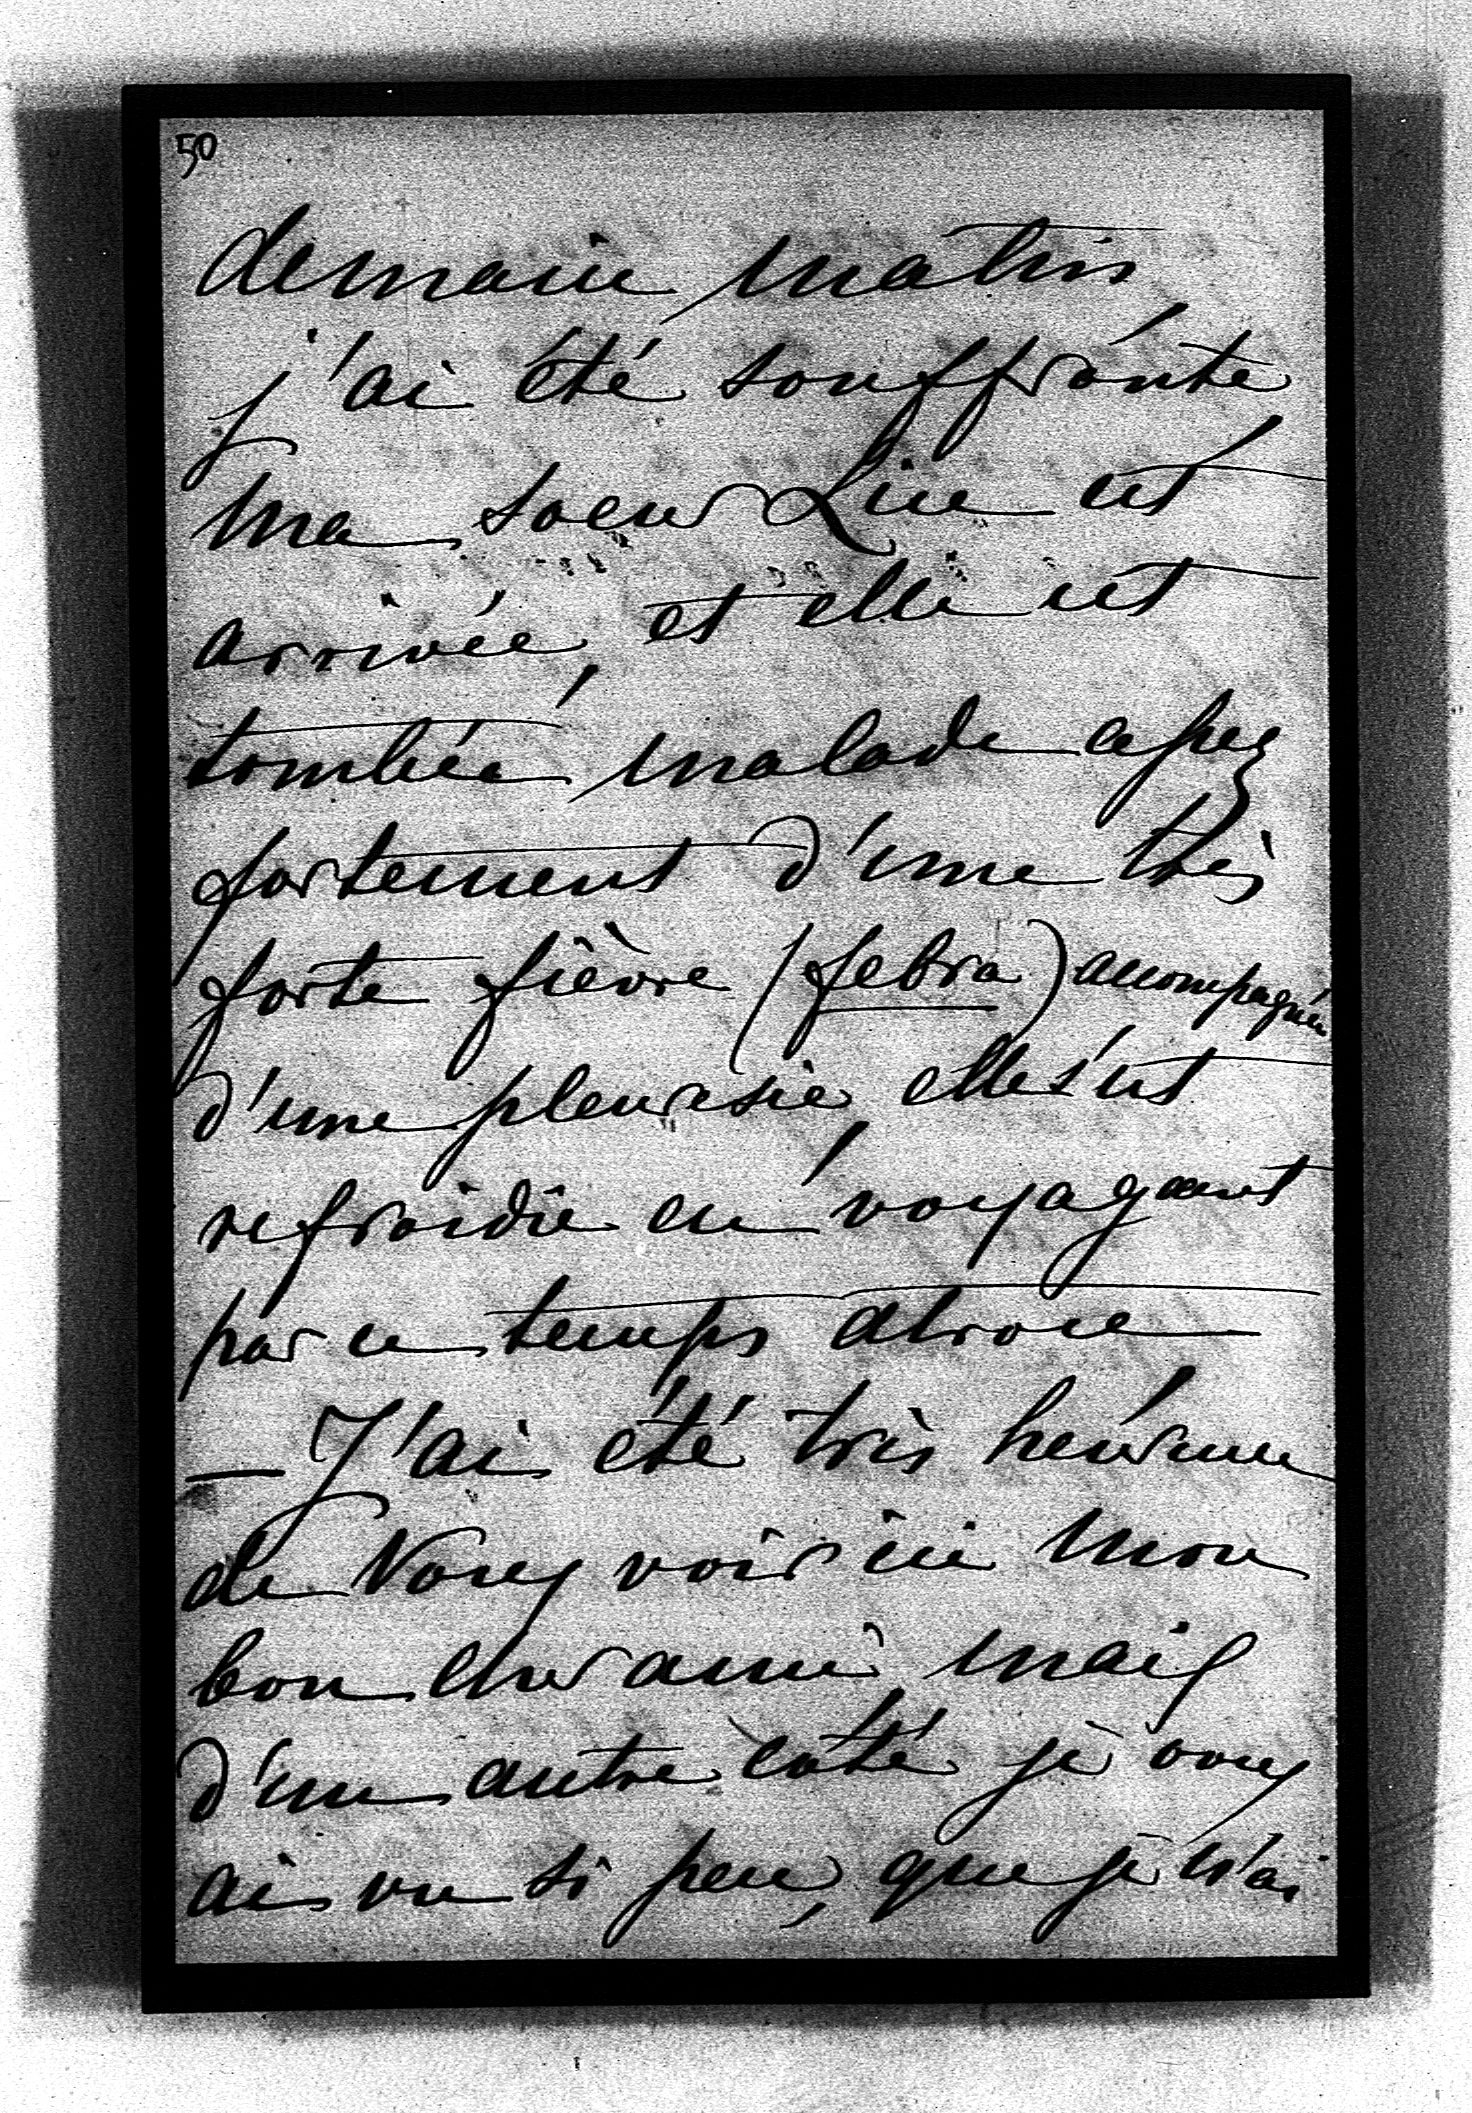 50
demain matin
j'ai été souffrante
ma soeur Line est
arrivée, et elle est
tombée malade assez
fortement d'une très
forte fièvre (febra) accompagnée
d'une pleuresie, elle s'est
refroidie en voyageant
par ce temps atroce
— J'ai été très heureuse
de Vous voir ici mon
bon cher ami, mais
d'un autre coté je vous
ai vu si peu, que je n'ai